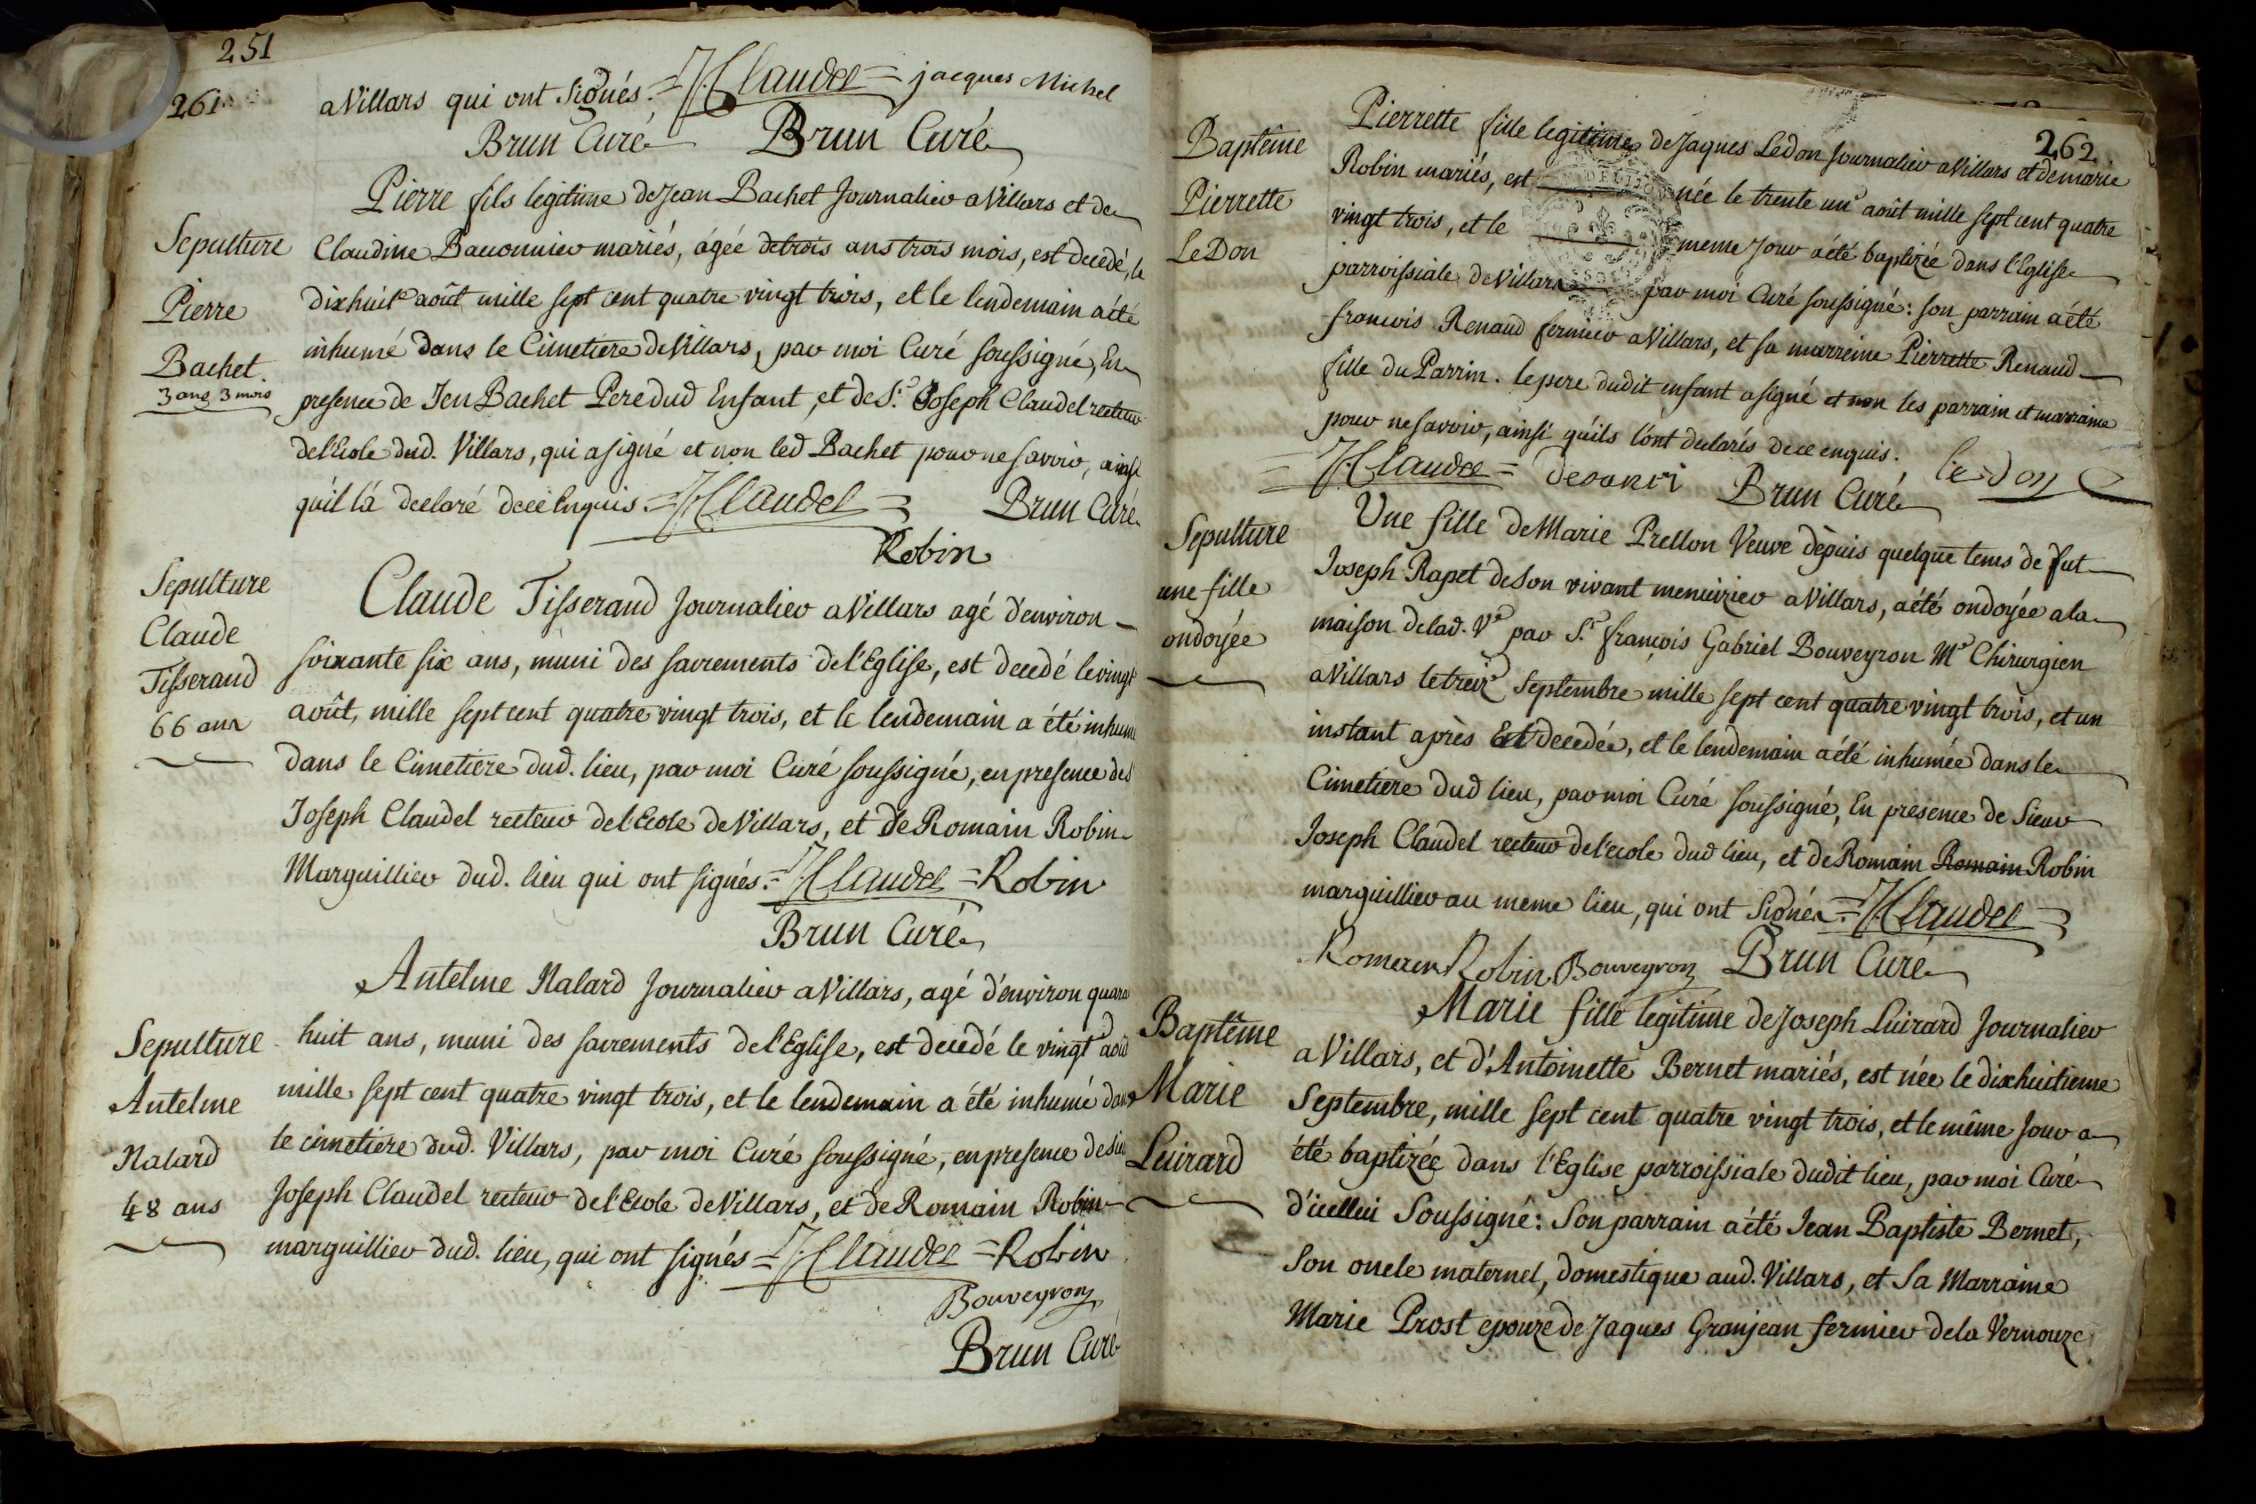 251
261
a Villars qui ont signés. = J Claudel = jacques Michel
Brun Curé Brun Curé
Sepulture
Pierre
Bachet
3 ans 3 mois
Pierre fils legitime de Jean Bachet Journalier a Villars et de
Claudine mariés, ágée de trois ans trois mois, est decedé, le
dixhuit août mille sept cent quatre vingt trois, et le lendemain a été
inhumé dans le Cimetiere de Villars, par moi Curé soussigné, En
presence de Jen Bachet Pere dud Enfant, et de Sr. Joseph Claudel recteur
de l'Ecole dud. Villars, qui a signé et non led Bachet pour ne savoir, ainsi
qu'il l'a declaré de ce Enquis. = J Claudel = Brun Curé
Robin
Sepulture
Claude
Tisserand
66 ans
Claude Tisserand Journalier a Villars agé d'environ
soixante six ans, muni des sacrements de l'Eglise, est decedé le vingt
août, mille sept cent quatre vingt trois, et le lendemain a été inhumé
dans le Cimetiere dud. lieu, par moi Curé soussigné, en presence de
Joseph Claudel recteur de l'Ecole de Villars, et de Romain Robin
Marguillier dud. lieu qui ont signés. = J Claudel = Robin
Brun Curé
Sepulture
Antelme
Nalard
48 ans
Antelme Nalard Journalier a Villars, agé d'environ quara
huit ans, muni des sacrements de l'Eglise, est decedé le vingt août
mille sept cent quatre vingt trois, et le lendemain a été inhumé dans
le cimetiere dud. Villars, par moi Curé soussigné, en presence de sieur
Joseph Claudel recteur de l'Ecole de Villars, et de Romain Robin
marguillier dud. lieu, qui ont signés = J Claudel = Robin
Bouveyron
Brun Curé
262
Baptême
Pierrette
LeDon
Pierrette fille legitime de Jaques Ledon Journalier a Villars et de marie
Robin mariés, est née le trente un août mille sept cent quatre
vingt trois, et le meme Jour a été baptizée dans l'Eglise
parroissiale de Villars par moi Curé soussigné : son parrain a été
francois Renaud fermier a Villars, et sa marreine Pierrette Renaud
fille du Parrin. le pere dudit enfant a signé et non les parrain et marraine
pour ne savoir, ainsi qu'ils l'ont declarés de ce enquis.
= J Claudel = Brun Curé le don
Sepulture
une fille
ondoyée
Une fille de Marie Prellon Veuve dépuis quelque tems de fut
Joseph Rapet de son vivant menuizier a Villars, a été ondoyée a la
maison de lad. Ve par Sr. françois Gabriel Bouveyron Me Chirurgien
a Villars le treize Septembre mille sept cent quatre vingt trois, et un
instant après Est decedée, et le lendemain a été inhumée dans le
Cimetiere dud lieu, par moi Curé soussigné, En presence de Sieur
Joseph Claudel recteur de l'ecole dud lieu, et de Romain Romain Robin
marguillier au meme lieu, qui ont signés = J Claudel =
Romain Robin Bouveyron Brun Curé
Baptême
Marie
Luirard
Marie fille legitime de Joseph Luirard Journalier
a Villars, et d'Antoinette Bernet mariés, est née le dixhuitieme
Septembre, mille sept cent quatre vingt trois, et le même Jour a
été baptizée dans l'Eglise parroissiale dudit lieu, par moi Curé
d'icellui Soussigné : Son parrain a été Jean Baptiste Bernet,
Son oncle maternel, domestique aud. Villars, et Sa Marraine
Marie Prost epouze de Jaques Granjean fermier de la Vernouze